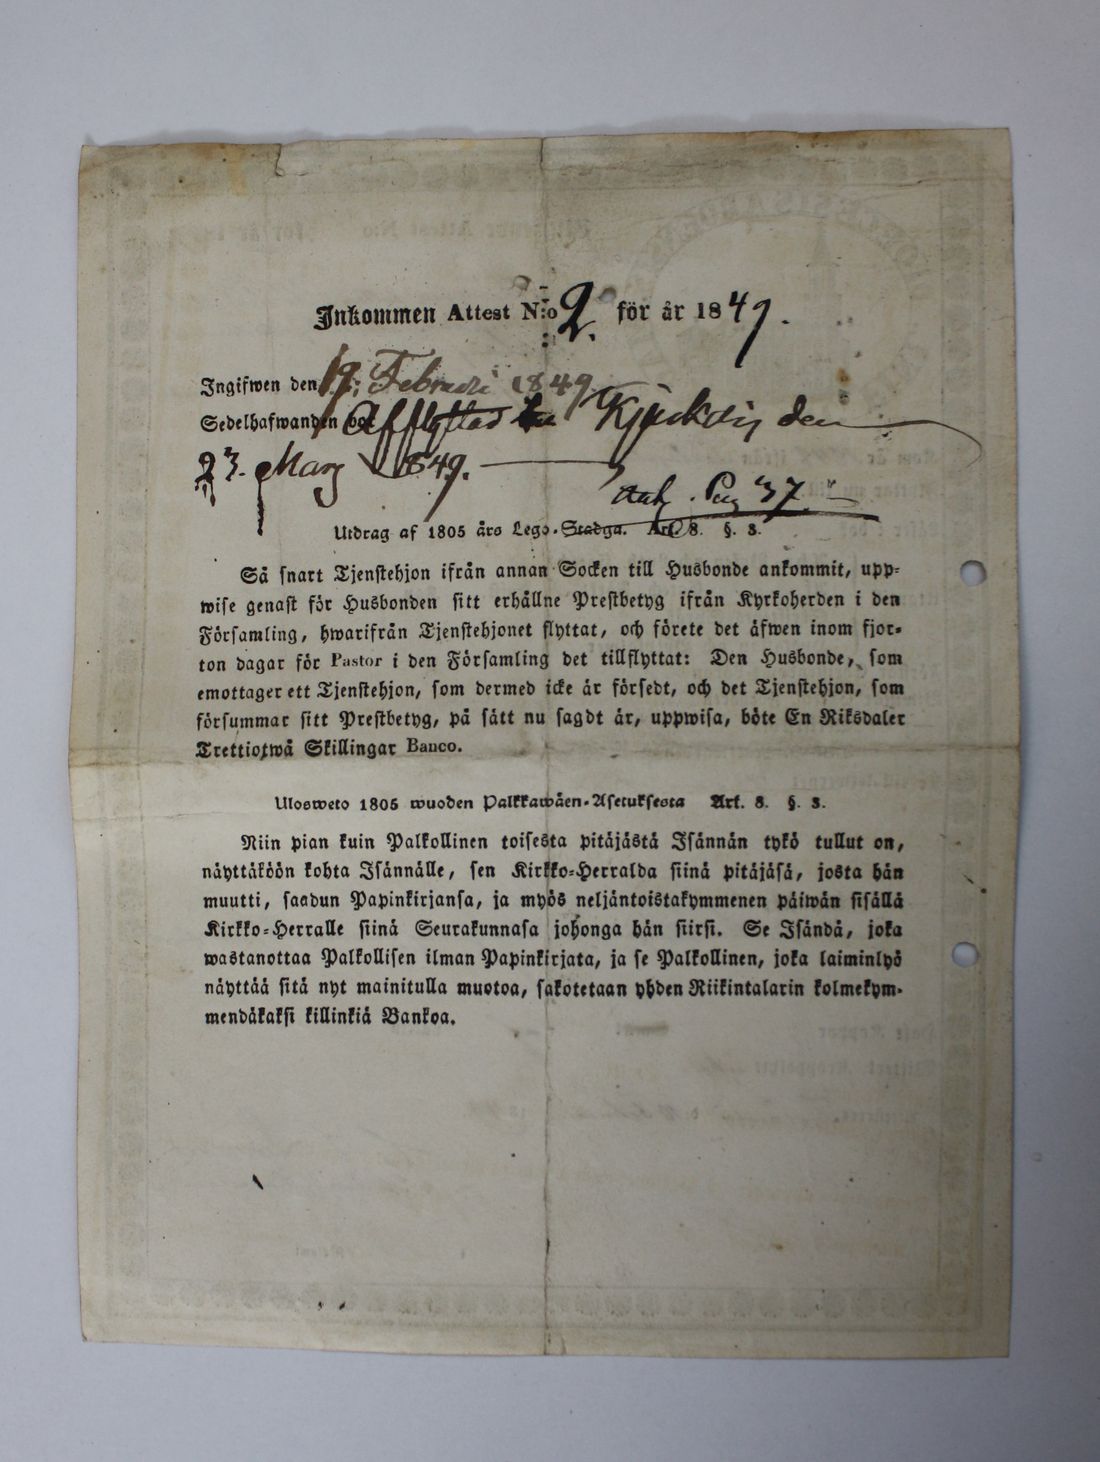 Inkommen Attest N:o 2. för år 1849.
Ingifwen den 19 Februari 1849
Sedelhafwanden Afflyttad Kjuloby den
23. Mars 1849.
Pag 37.
Utdrag af 1805 års Lego-Stadga. Art. 8. §. 3.
Så snart Tjenstehjon ifrån annan Socken till Husbonde ankommit, upp-
wise genast för Husbonden sitt erhållne Prestbetyg ifrån Kyrkoherden i den
Församling, hwarifrån Tjenstehjonet flyttat, och förete det äfwen inom fjor-
ton dagar för Pastor i den Församling det tillflyttat: Den Husbonde, som
emottager ett Tjenstehjon, som dermed icke är försedt, och det Tjenstehjon, som
försummar sitt Prestbetyg, på sätt nu sagdt är, uppwisa, böte En Riksdaler
Trettiotwå Skillingar Banco.
Ulosweto 1805 wuoden Palkkawäen-Asetuksesta Art. 8. §. 3.
Niin pian kuin Palkollinen toisesta pitäjästä Isännän tykö tullut on,
näyttäköön kohta Isännälle, sen Kirkko-Herralda siinä pitäjäsä, josta hän
muutti, saadun Papinkirjansa, ja myös neljäntoistakymmenen päiwän sisällä
Kirkko-Herralle siinä Seurakunnasa johonga hän siirsi. Se Isändä, joka
wastanottaa Palkollisen ilman Papinkirjata, ja se Palkollinen, joka laiminlyö
näyttää sitä nyt mainitulla muotoa, sakotetaan yhden Riikintalarin kolmekym-
mendäkaksi killinkiä Bankoa.